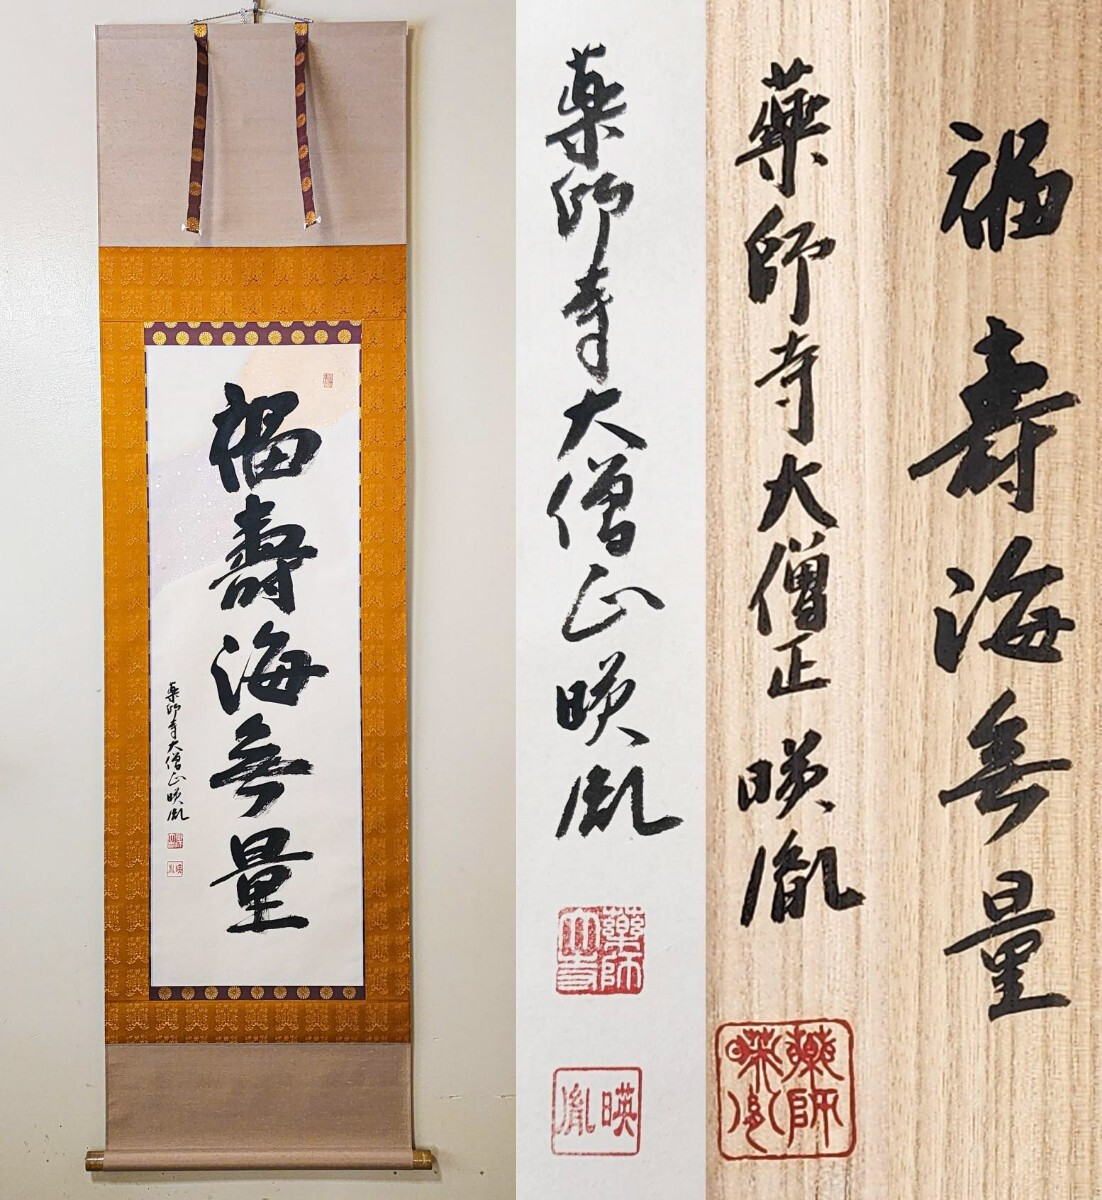 福壽海無量
薬師寺大僧正暎胤
薬師寺大僧正暎胤
藥師
暎胤
藥師寺大僧正 暎胤
福壽海無量